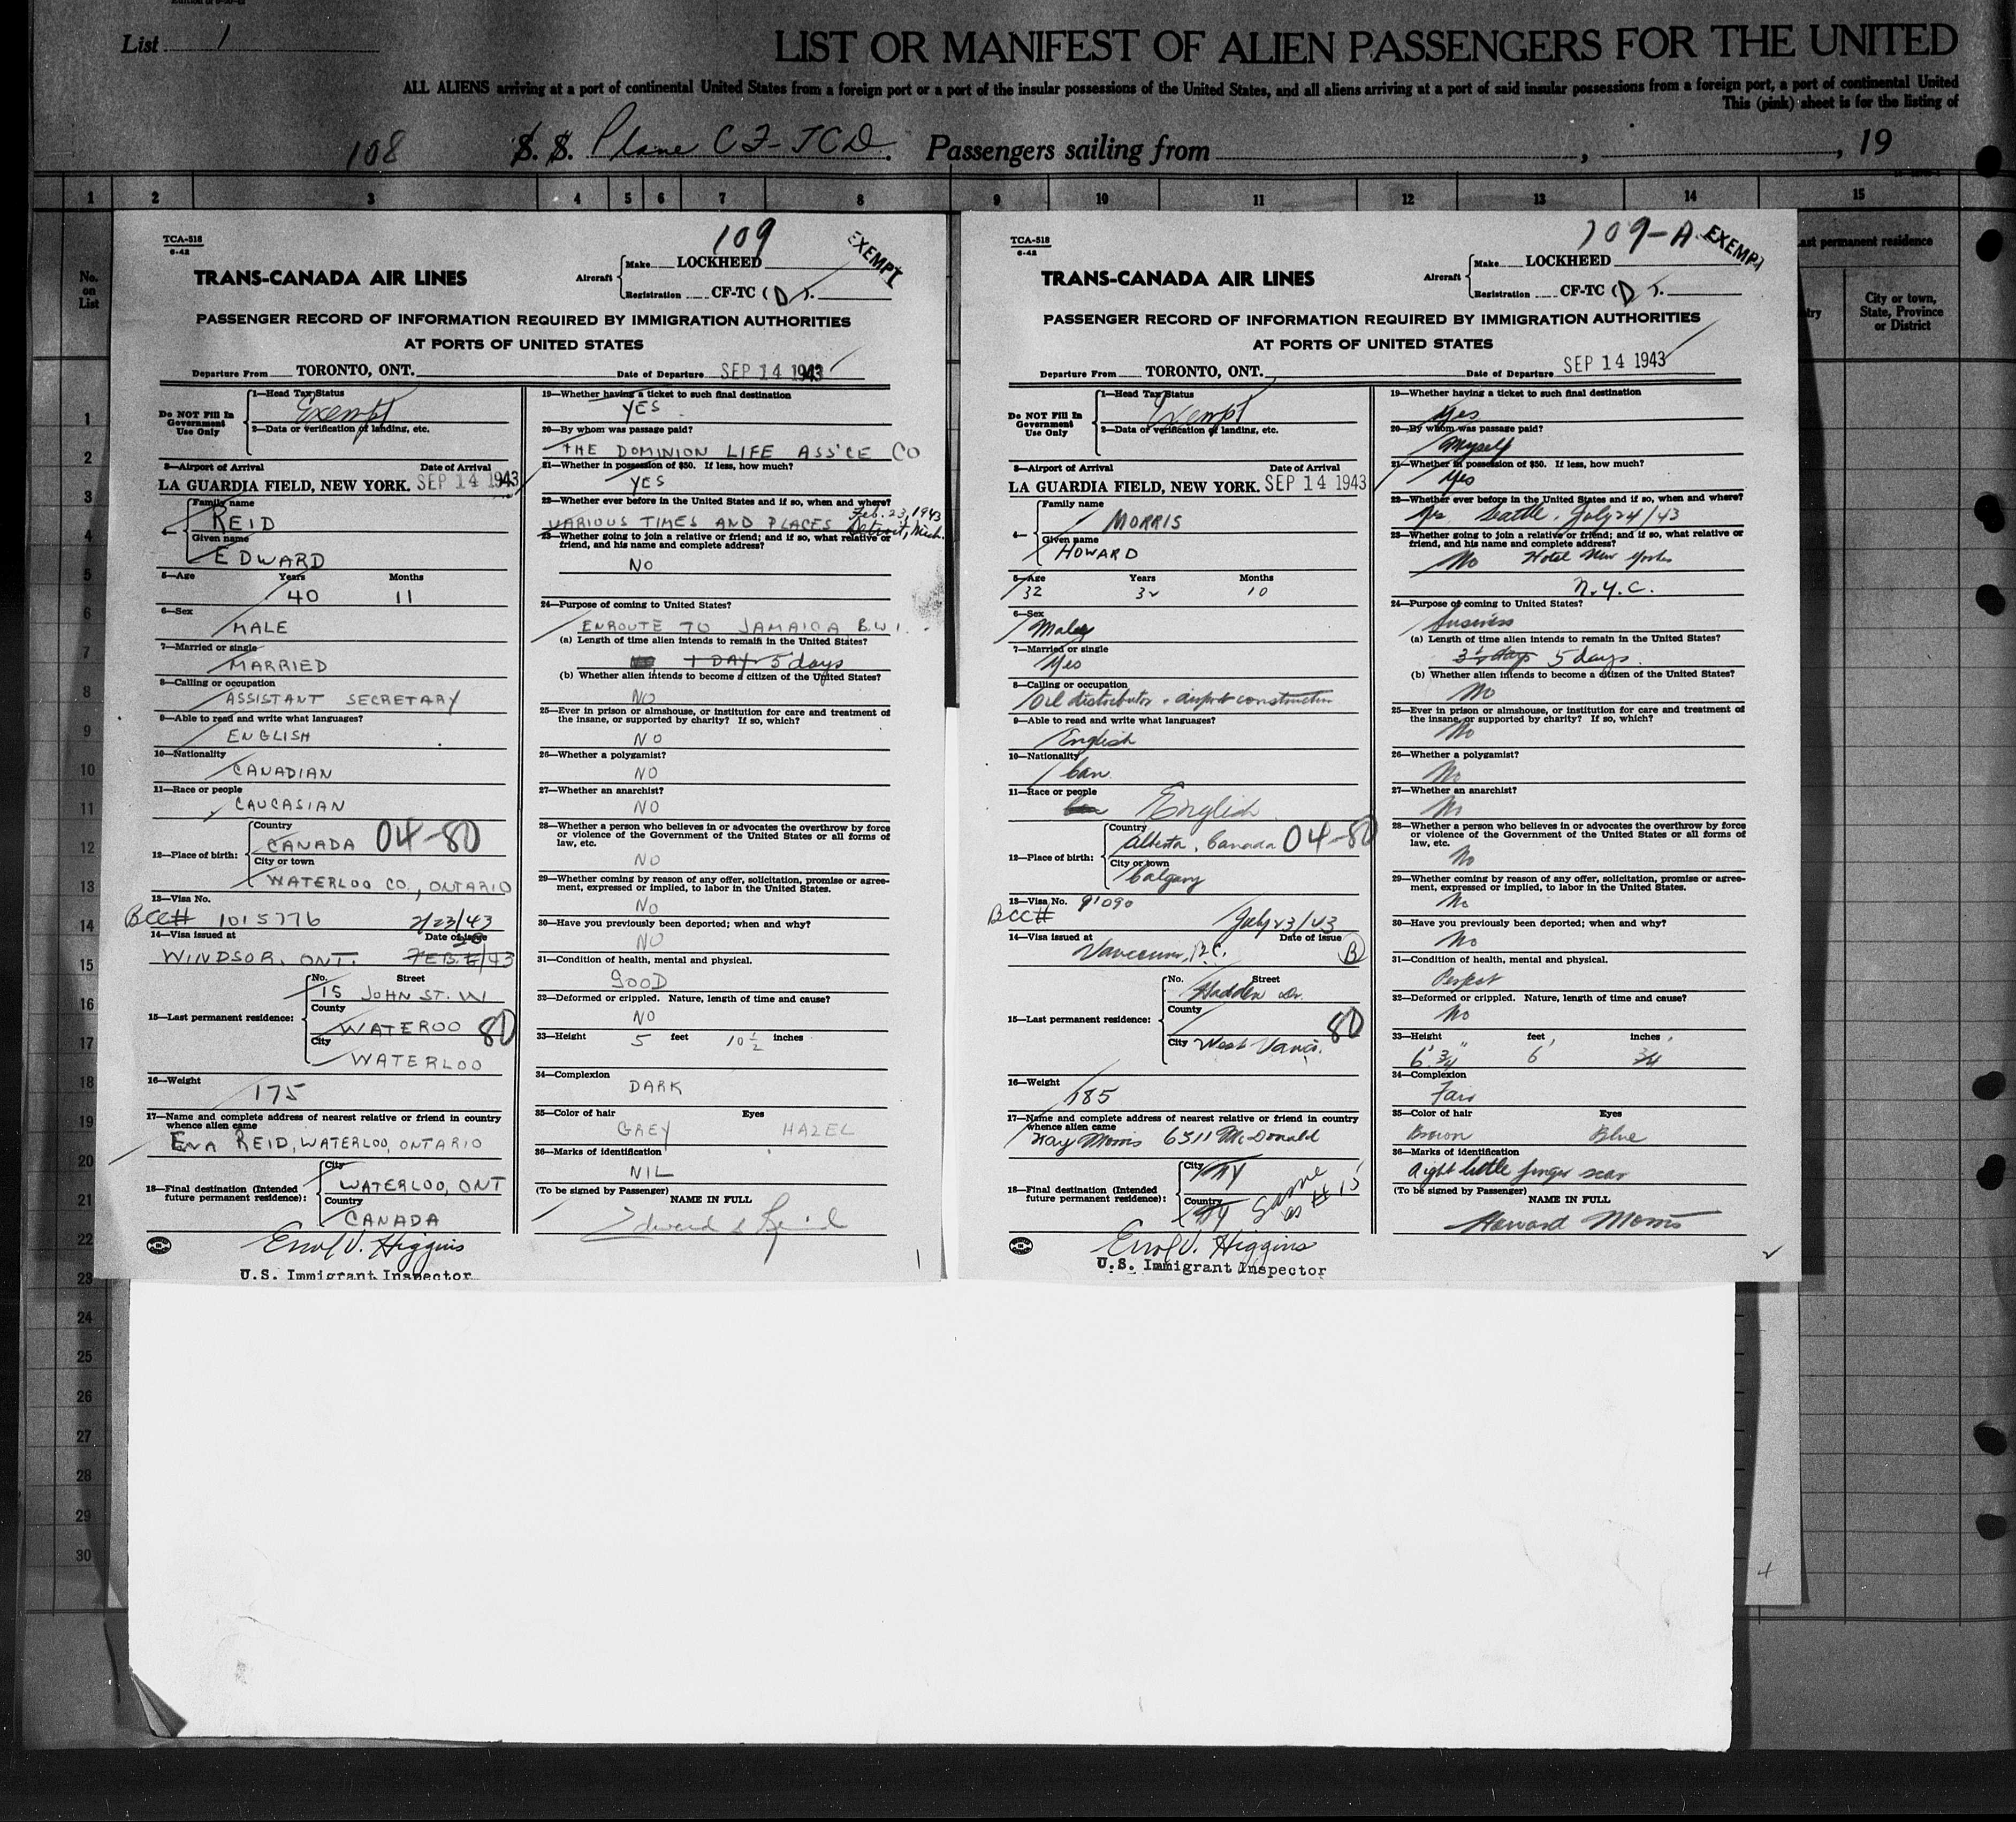 List 1
LIST OR MANIFEST OF ALIEN PASSENGERS FOR THE UNITED
ALL ALIENS arriving at a port of continental United States from a foreign port or a port of the insular possessions of the United States, and all aliens arriving at a port of said insular possessions from a foreign port, a port of continental United
This (pink) sheet is for the listing of
108 S. S. Plane CF-TCD. Passengers sailing from , , 19
1 2 3 4 5 6 7 8 9 10 11 12 13 14 15
No. on List
permanent residence
City or town, State, Province or District
1
2
3
4
5
6
7
8
9
10
11
12
13
14
15
16
17
18
19
20
21
22
23
24
25
26
27
28
29
30
TCA-518
6-42
109
EXEMPT
TRANS-CANADA AIR LINES
Aircraft Make LOCKHEED
Registration CF-TC (D).
PASSENGER RECORD OF INFORMATION REQUIRED BY IMMIGRATION AUTHORITIES
AT PORTS OF UNITED STATES
Departure From TORONTO, ONT. Date of Departure SEP 14 1943
Do NOT Fill In Government Use Only
1—Head Tax Status
Exempt
2—Data or verification of landing, etc.
3—Airport of Arrival Date of Arrival
LA GUARDIA FIELD, NEW YORK. SEP 14 1943
4— Family name
REID
Given name
EDWARD
5—Age Years Months
40 11
6—Sex
MALE
7—Married or single
MARRIED
8—Calling or occupation
ASSISTANT SECRETARY
9—Able to read and write what languages?
ENGLISH
10—Nationality
CANADIAN
11—Race or people
CAUCASIAN
12—Place of birth: Country
CANADA 04-80
City or town
WATERLOO CO., ONTARIO
13—Visa No.
BCC# 1015776 2/23/43
14—Visa issued at Date of issue
WINDSOR, ONT. FEB. /43
15—Last permanent residence: No. Street
15 JOHN ST. W
County
WATEROO 80
City
WATERLOO
16—Weight
175
17—Name and complete address of nearest relative or friend in country
whence alien came
EVA REID, WATERLOO, ONTARIO
18—Final destination (Intended future permanent residence): City
WATERLOO, ONT
Country
CANADA
Errol V. Higgins
U.S. Immigrant Inspector
19—Whether having a ticket to such final destination
YES
20—By whom was passage paid?
THE DOMINION LIFE ASS'CE CO
21—Whether in possession of $50. If less, how much?
YES
22—Whether ever before in the United States and if so, when and where?
VARIOUS TIMES AND PLACES Feb. 23, 1943
Detroit, Mich.
23—Whether going to join a relative or friend; and if so, what relative or
friend, and his name and complete address?
NO
24—Purpose of coming to United States?
ENROUTE TO JAMAICA B.W.I.
(a) Length of time alien intends to remain in the United States?
1 DAY 5 days
(b) Whether alien intends to become a citizen of the United States?
NO
25—Ever in prison or almshouse, or institution for care and treatment of
the insane, or supported by charity? If so, which?
NO
26—Whether a polygamist?
NO
27—Whether an anarchist?
NO
28—Whether a person who believes in or advocates the overthrow by force
or violence of the Government of the United States or all forms of
law, etc.
NO
29—Whether coming by reason of any offer, solicitation, promise or agree-
ment, expressed or implied, to labor in the United States.
NO
30—Have you previously been deported; when and why?
NO
31—Condition of health, mental and physical.
GOOD
32—Deformed or crippled. Nature, length of time and cause?
NO
33—Height 5 feet 10 1/2 inches
34—Complexion
DARK
35—Color of hair Eyes
GREY HAZEL
36—Marks of identification
NIL
(To be signed by Passenger) NAME IN FULL
Edward S Reid
1
TCA-518
6-42
109-A
EXEMPT
TRANS-CANADA AIR LINES
Aircraft Make LOCKHEED
Registration CF-TC (D).
PASSENGER RECORD OF INFORMATION REQUIRED BY IMMIGRATION AUTHORITIES
AT PORTS OF UNITED STATES
Departure From TORONTO, ONT. Date of Departure SEP 14 1943
Do NOT Fill In Government Use Only
1—Head Tax Status
Exempt
2—Data or verification of landing, etc.
3—Airport of Arrival Date of Arrival
LA GUARDIA FIELD, NEW YORK. SEP 14 1943
4— Family name
MORRIS
Given name
HOWARD
5—Age Years Months
32 32 10
6—Sex
Male
7—Married or single
Yes
8—Calling or occupation
Oil distributor & airport construction
9—Able to read and write what languages?
English
10—Nationality
Can
11—Race or people
English
12—Place of birth: Country
Alberta, Canada 04-80
City or town
Calgary
13—Visa No. 91090
BCC# July 23/43
14—Visa issued at Date of issue
Vancouver, B.C. B
15—Last permanent residence: No. Street
Hadden Dr.
County
80
City West Vanc.
16—Weight
185
17—Name and complete address of nearest relative or friend in country
whence alien came
Kay Morris 6511 McDonald
18—Final destination (Intended future permanent residence): City
NY
Country
NY
Same as # 15
Errol V. Higgins
U.S. Immigrant Inspector
19—Whether having a ticket to such final destination
Yes
20—By whom was passage paid?
Myself
21—Whether in possession of $50. If less, how much?
Yes
22—Whether ever before in the United States and if so, when and where?
Yes Seattle, July 24/43
23—Whether going to join a relative or friend; and if so, what relative or
friend, and his name and complete address?
No Hotel New Yorker
N.Y.C.
24—Purpose of coming to United States?
Business
(a) Length of time alien intends to remain in the United States?
5 days.
(b) Whether alien intends to become a citizen of the United States?
No
25—Ever in prison or almshouse, or institution for care and treatment of
the insane, or supported by charity? If so, which?
No
26—Whether a polygamist?
No
27—Whether an anarchist?
No
28—Whether a person who believes in or advocates the overthrow by force
or violence of the Government of the United States or all forms of
law, etc.
No
29—Whether coming by reason of any offer, solicitation, promise or agree-
ment, expressed or implied, to labor in the United States.
No
30—Have you previously been deported; when and why?
No
31—Condition of health, mental and physical.
Perfect
32—Deformed or crippled. Nature, length of time and cause?
No
33—Height feet inches
6' 3/4" 6' 3/4
34—Complexion
Fair
35—Color of hair Eyes
Brown Blue
36—Marks of identification
Right little finger scar
(To be signed by Passenger) NAME IN FULL
Howard Morris